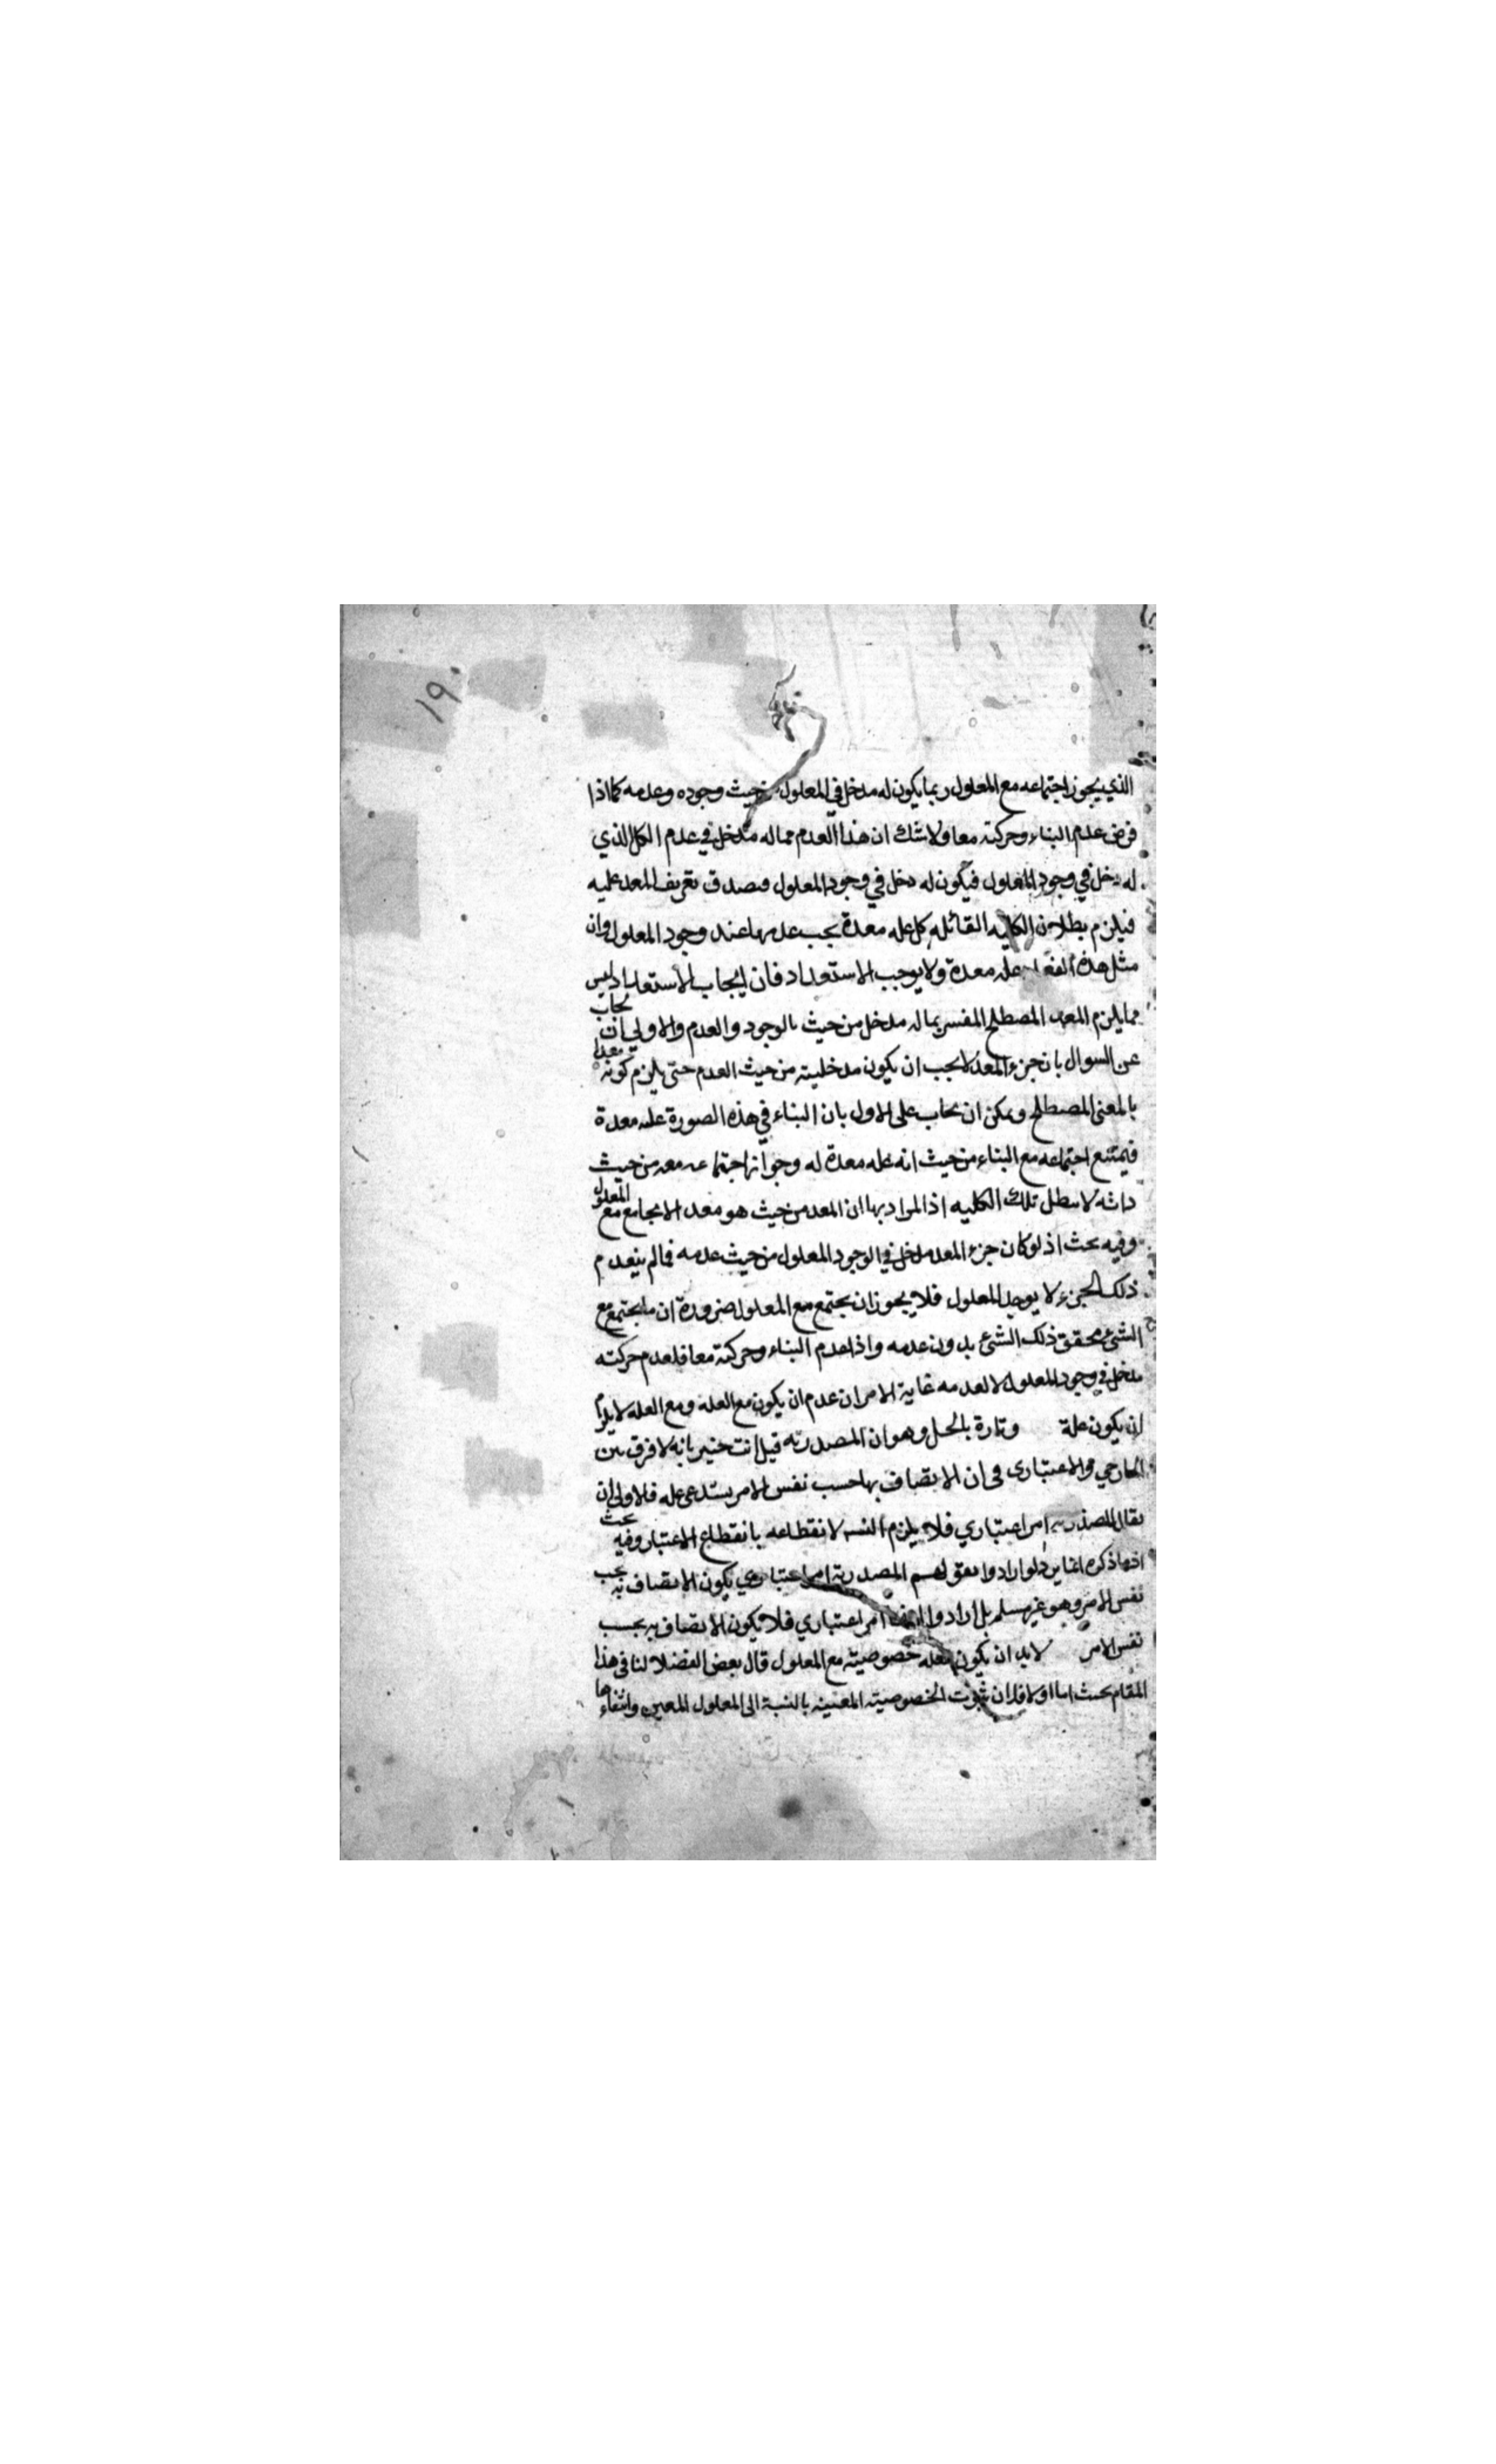 ١٩٠
الذي يجوز اجتماعه مع المعلول ربما يكون له مدخل في المعلول من حيث وجوده وعدمه كما اذا
فرض عدم البناء وحركته معا ولا شك ان هذا العدم مما له مدخل في عدم الكل الذي
له دخل في وجود المعلول فيكون له دخل في وجود المعلول فيصدق تعريف المعد عليه
فيلزم بطلان الكليه القائله كل عله معدة يجب عدمها عند وجود المعلول وان
مثل هذه علة معدة ولا يوجب الاستعداد فان ايجاب الاستعداد ليس
مما يلزم المعد المصطلح المفسر بما له مدخل من حيث الوجود والعدم والاولي ان يجاب
عن السوال بان جزء المعد لا يجب ان يكون مدخليته من حيث العدم حتى يلزم كونه معدا
بالمعنى المصطلح ويمكن ان يجاب على الاول بان البناء في هذه الصورة عله معدة
فيمتنع اجتماعه مع البناء من حيث انه عله معدة له وجواز اجتماعه معه من حيث
ذاته لا يبطل تلك الكليه اذ المراد بها ان المعد من حيث هو معد لا يجامع مع المعلول
وفيه بحث اذ لو كان جزء المعد مدخل في الوجود المعلول من حيث عدمه فما لم ينعدم
ذلك الجزء لا يوجد المعلول فلا يجوز ان يجتمع مع المعلول ضرورة ان ما يجتمع مع
الشئ محقق ذلك الشئ بدون عدمه واذا عدم البناء وحركته معا فلعدم حركته
مدخل في وجود المعلول لا لعدمه غاية الامر ان عدم ان يكون مع العله ومع العله لا يلزم
ان يكون علة وتارة بالحل وهو ان المصدريه قيل انت خبير بانه لا فرق بين
الخارجي والاعتباري في ان الاتصاف بها حسب نفس الامر يستدعي عله فالاولى ان
يقال المصدريه امر اعتباري فلا يلزم التسه لانقطاعه بانقطاع الاعتبار وفيه بحث
اذ ما ذكره انما يرد لو ارادوا بقولهم المصدرية امر اعتباري يكون الاتصاف به بحسب
نفس الامر وهو غير مسلم بل ارادوا انها امر اعتباري فلا يكون الاتصاف به بحسب
نفس الامر لا بد ان يكون لعله خصوصيته مع المعلول قال بعض الفضلا لنا في هذا
المقام بحث اما اولا فلان ثبوت الخصوصيته المعينه بالنسبة الى المعلول المعين وانتفاءها